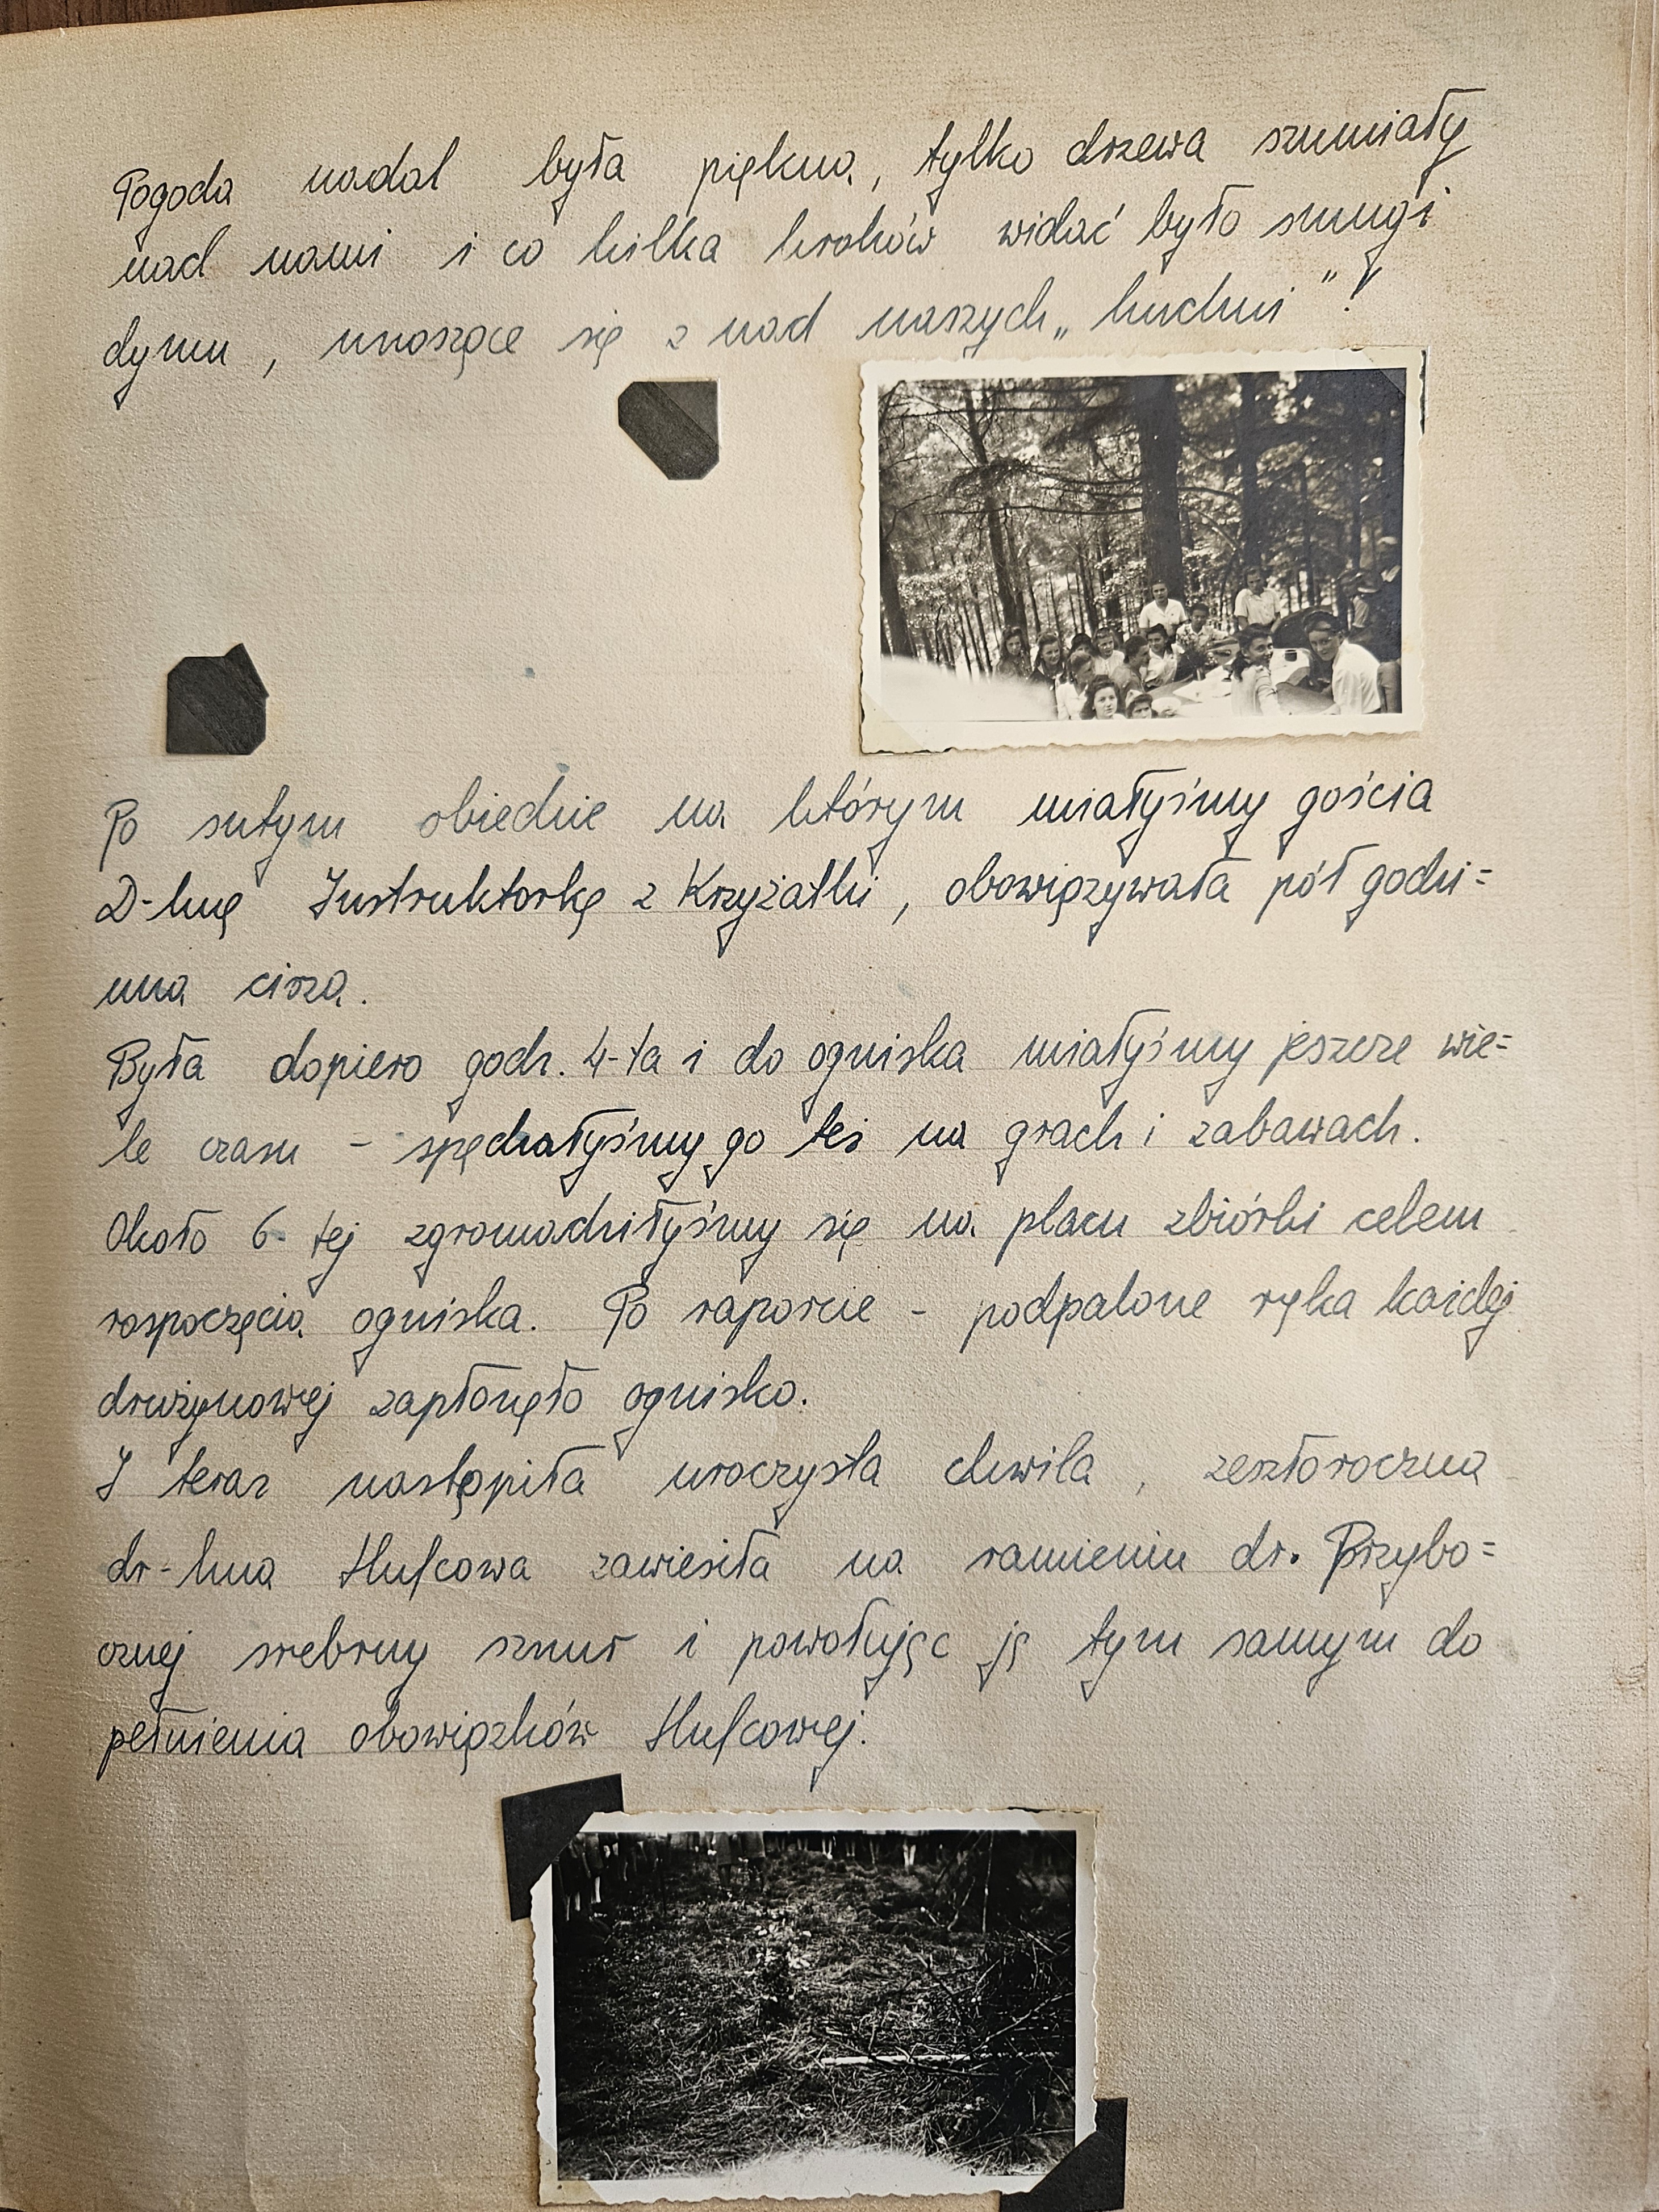 Pogoda nadal była piękna, tylko drzewa szumiały
nad nami i co kilka kroków widać było smugi
dymu, unoszące się z nad naszych „kuchni"!
Po sutym obiedzie na którym miałyśmy gościa
D-hnę Instruktorkę z Krzyżatki, obowiązywała pół godzi=
nna cisza.
Była dopiero godz. 4-ta i do ogniska miałyśmy jeszcze wie=
le czasu - spędzałyśmy go też na grach i zabawach.
Około 6-tej zgromadziłyśmy się na placu zbiórki celem
rozpoczęcia ogniska. Po raporcie - podpalone ręką każdej
drużynowej zapłonęło ognisko.
I teraz nastąpiła uroczysta chwila, zeszłoroczna
dr-hna Hufcowa zawiesiła na ramieniu dr. Przybo=
cznej srebrny sznur i powołując ją tym samym do
pełnienia obowiązków Hufcowej.